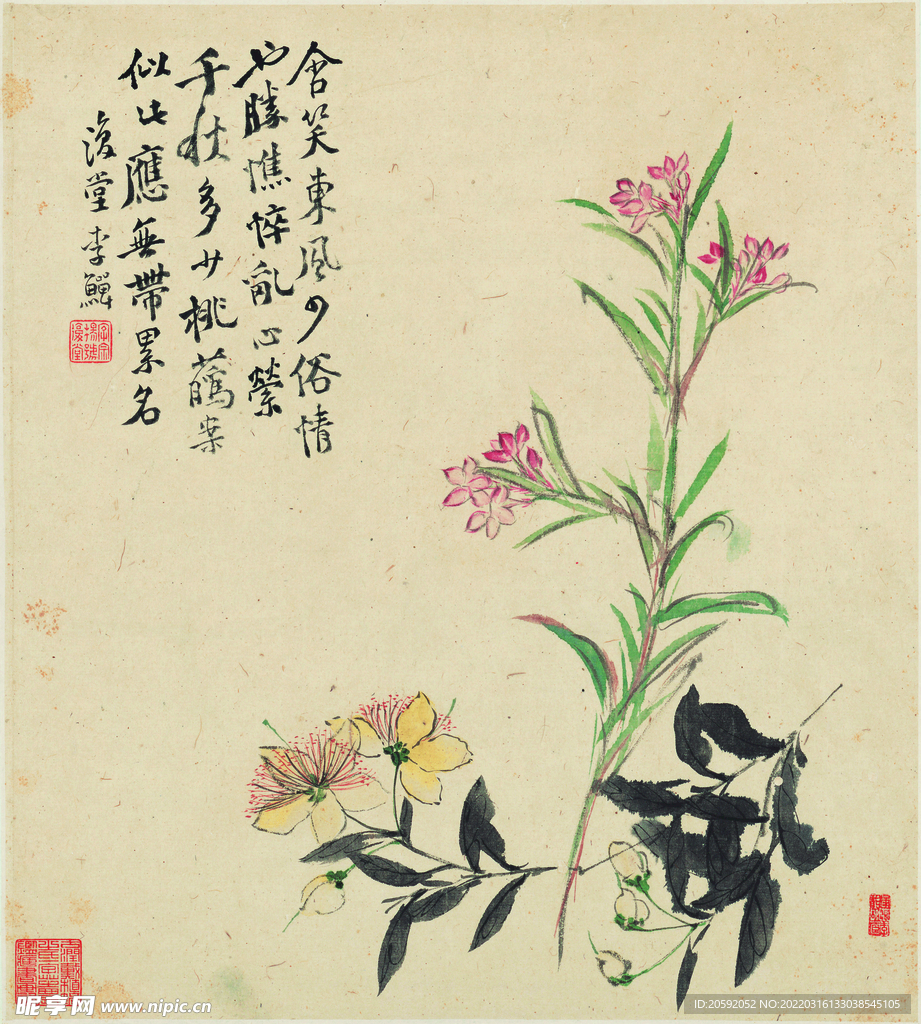 含笑東風少俗情
也勝憔悴亂心縈
千秋多少桃
似此應無帶累名
復堂李鱓
字宗揚號復堂
昵享网 www.nipic.cn
ID:20592052 NO:20220316133038545105